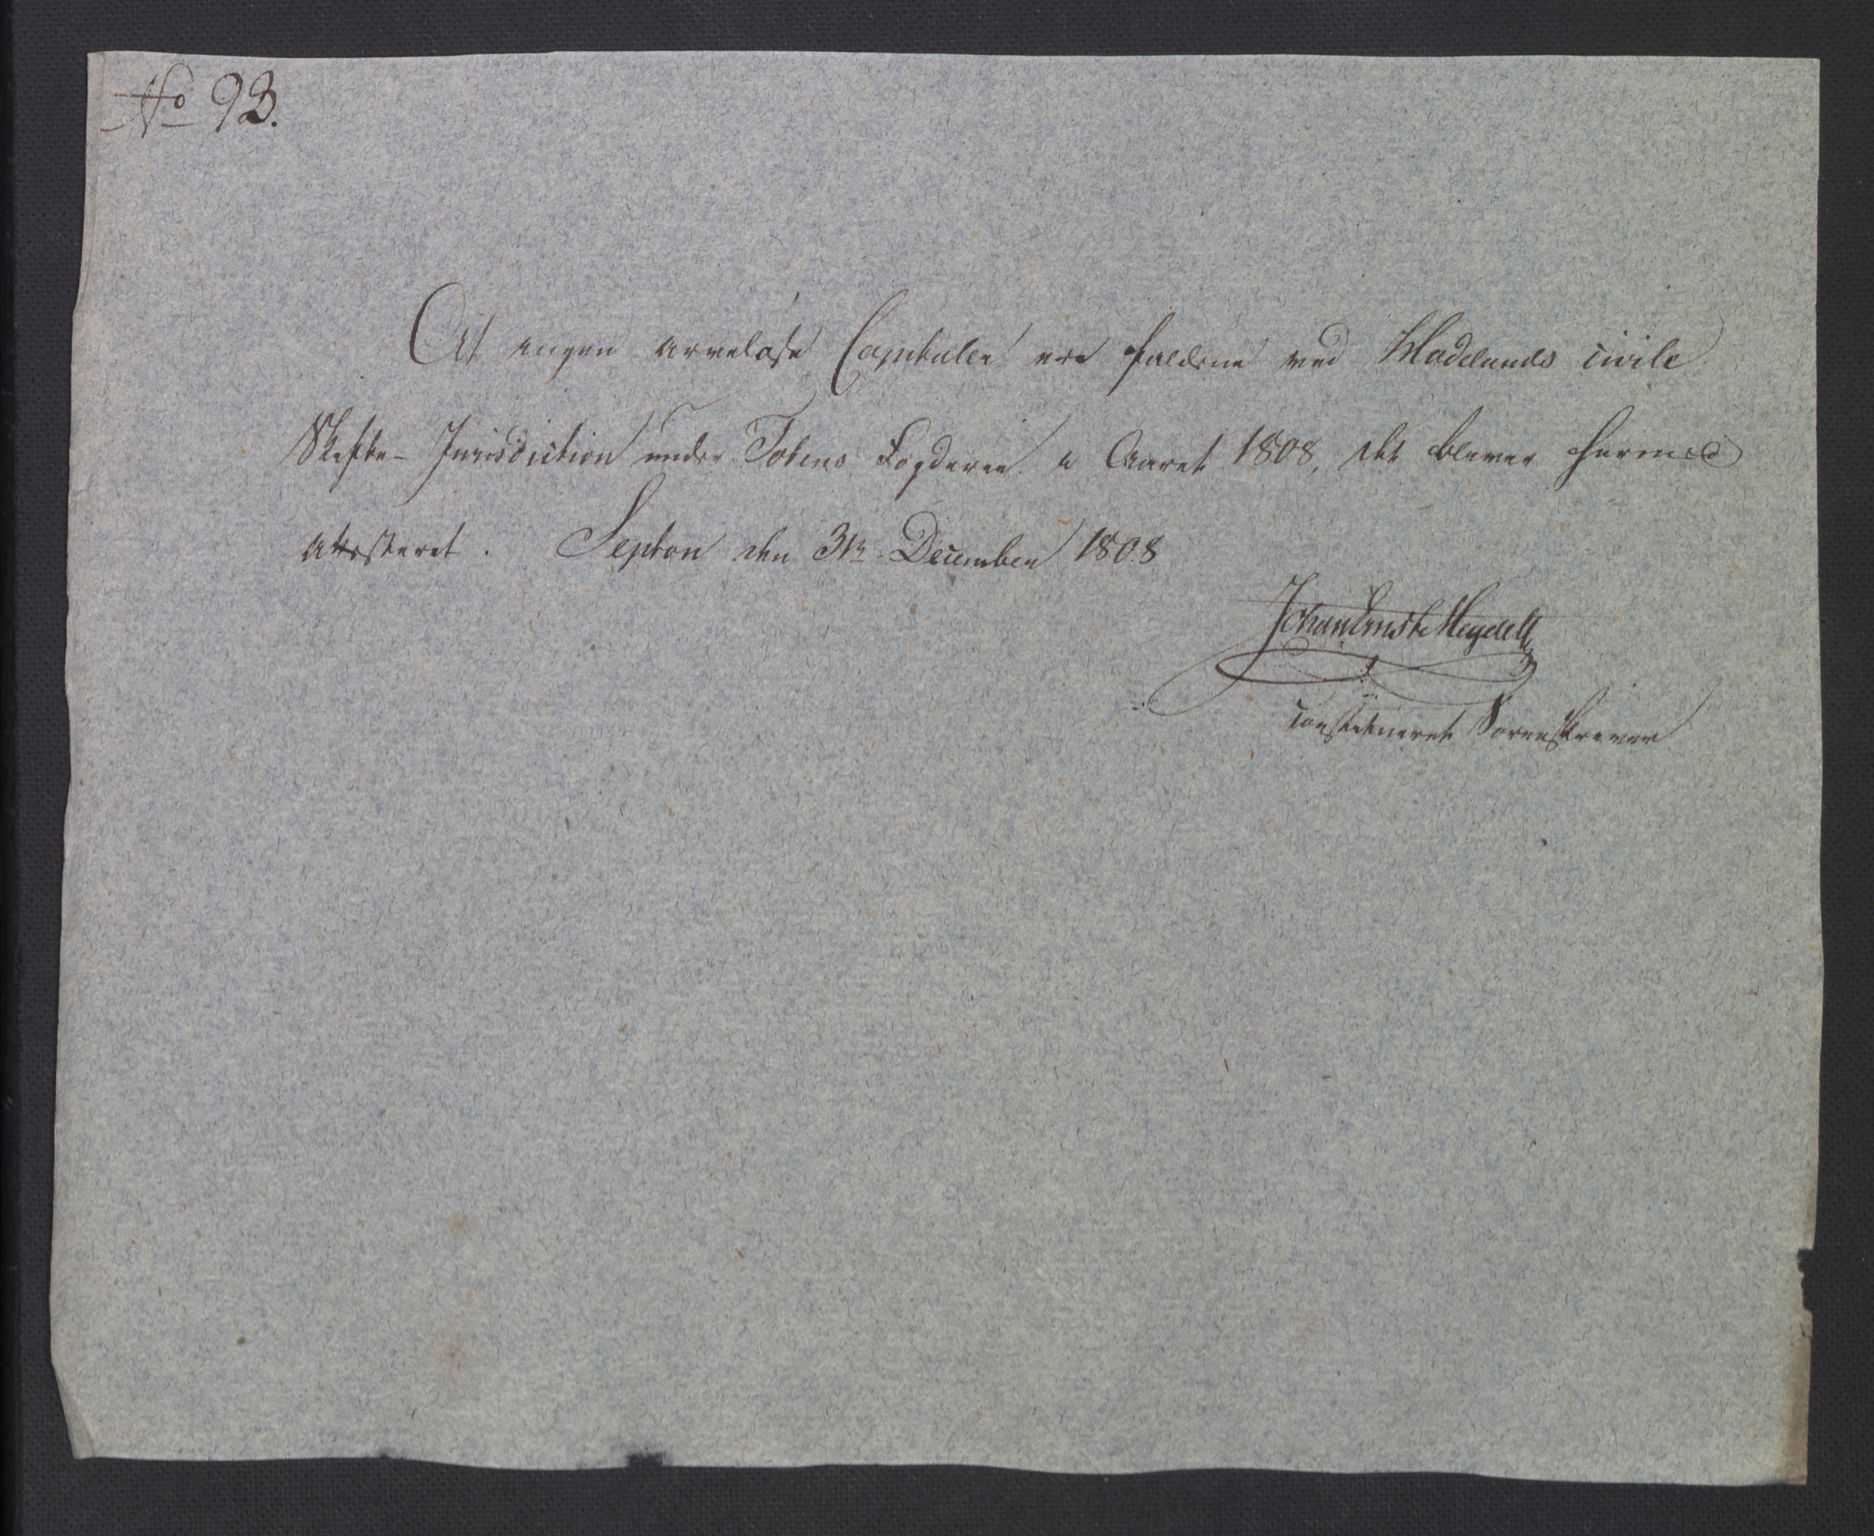 No 93.
At ingen arveløse Capitaler ere faldne ved Hadelands civile
Skifte-Jurisdiction under Totens Fogderie i Aaret 1808, det bliver hermed
attesteret. den 31te December 1808
Johan Ernst Heydell
constitueret Sorenskriver